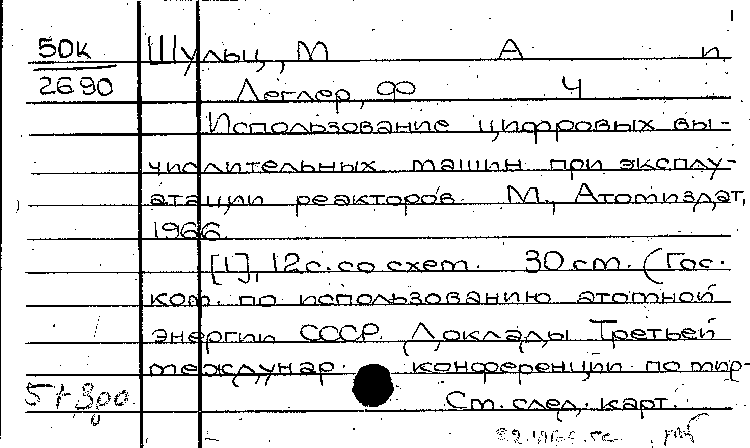 50к Шульц, М А п
2690 Леглер, Ф Ч
Использование цифровых вы-
числительных машин при эксплу-
атации реакторов. М., Атомиздат,
1966.
[1], 12 с. со схем. 30 см. (Гос.
ком. по использованию атомной
энергии СССР. Доклады Третьей
междунар. конференции по мир-
См. след. карт.